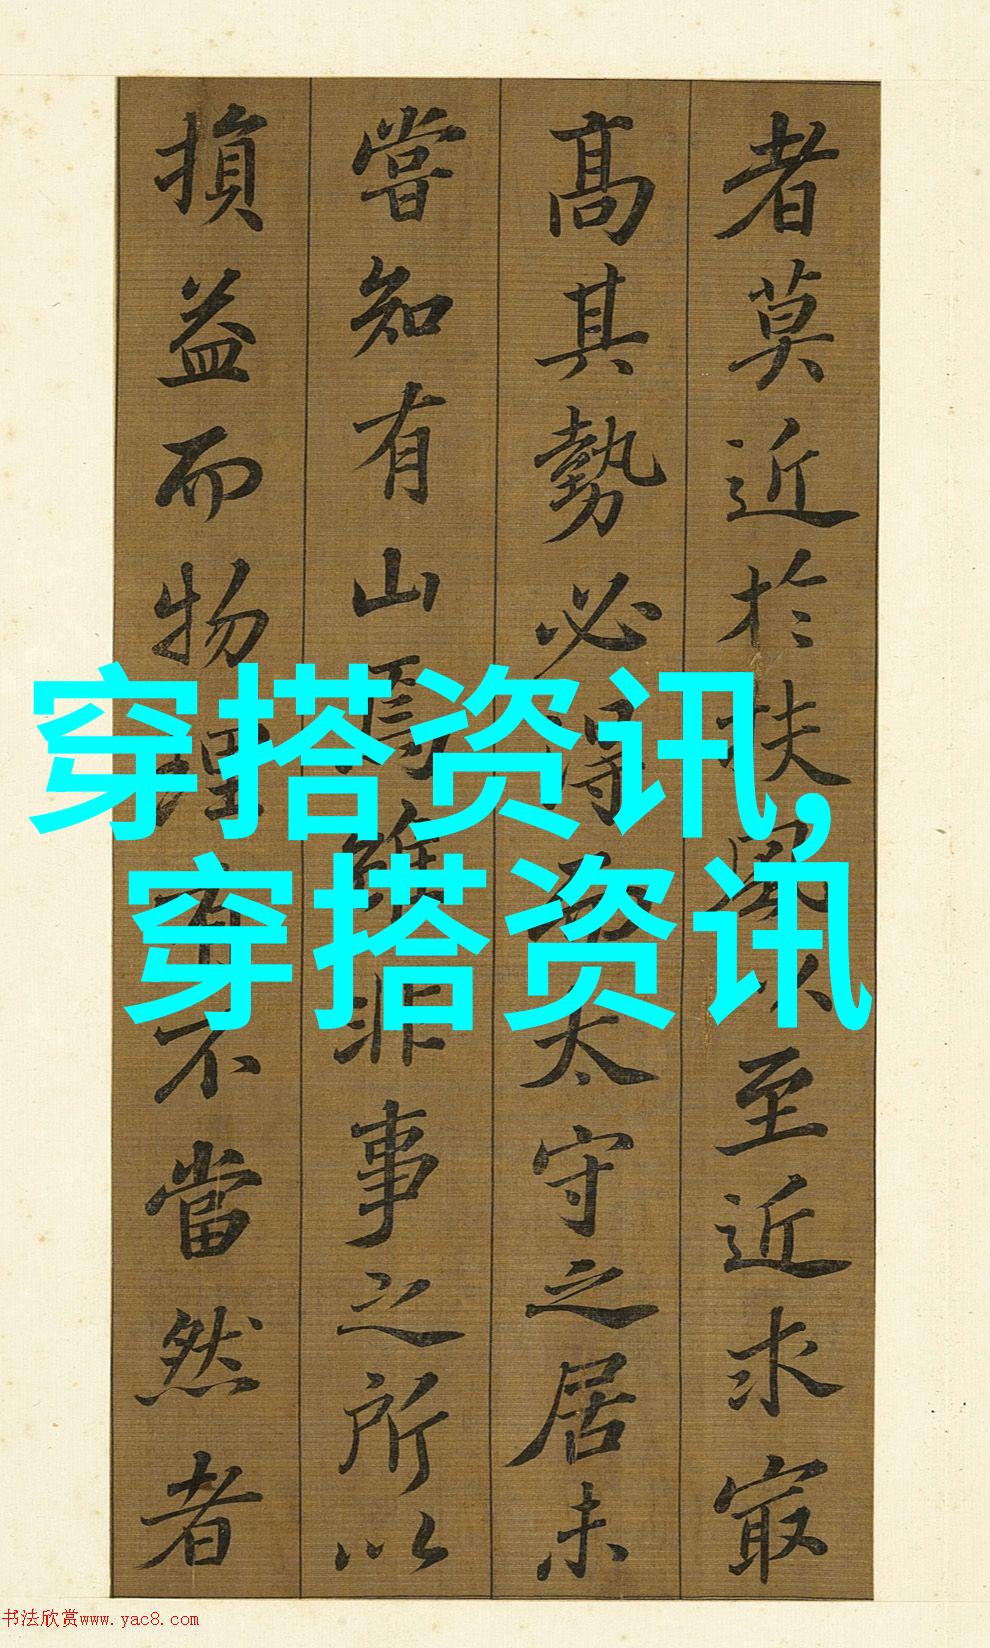 者莫近於扶風以至近求㝡
高其勢必得而太守之居未
嘗知有山焉雖非事之所以
損益而物理有不當然者
穿搭资讯,
穿搭资讯
书法欣赏www.yac8.com